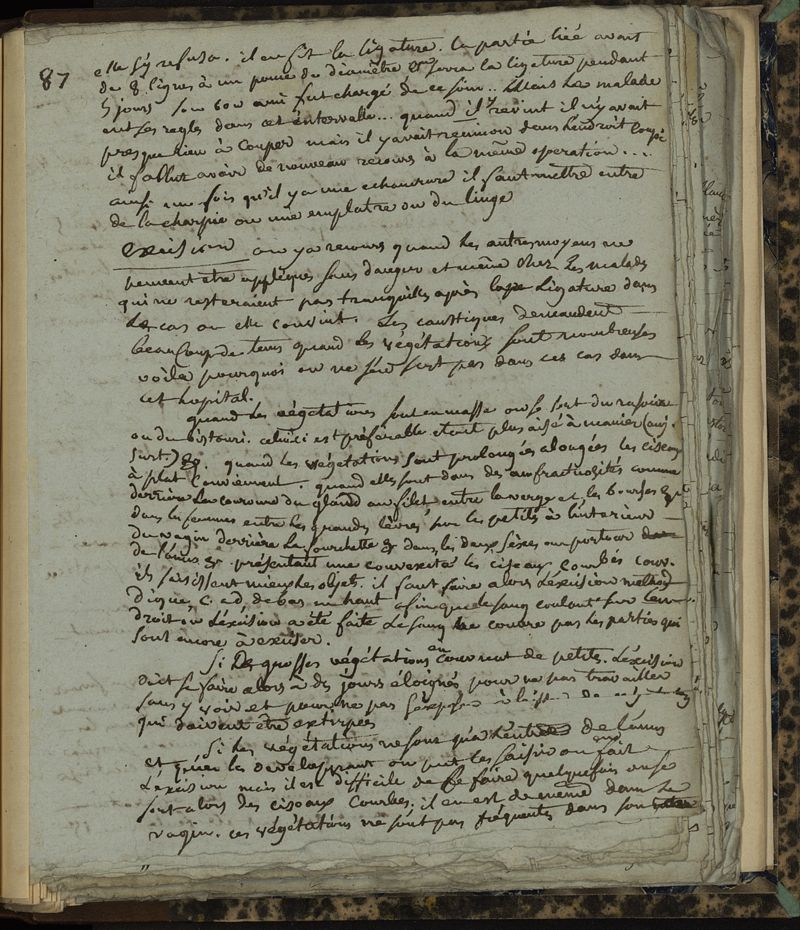 87
elle s'y refusa. il en fit la ligature. la partie liée avait
de 8 lignes à un pouce de diamètre et serra la ligature pendant
5 jours son bon ami fut chargé de ce soin.. Mais la malade
eut ses regles dans cet intervalle... quand il revint il n'y avait
presque rien à couper mais il y avait reunion dans l'endroit coupé
il fallut avoir de nouveau recours à la même operation....
ainsi une fois qu'il y a une echancrure il faut mettre entre
de la charpie ou une emplatre ou du linge
excision on y a recours quand les autres moyens ne
peuvent etre appliqués sans danger et même chez les malades
qui ne resteraient pas tranquilles après la ligature dans
le cas ou elle convint. Les caustiques demandent
beaucoup de tems quand les végétations sont nombreuses
voilà pourquoi on ne s'en sert pas dans ces cas dans
cet hopital.
quand les végétations sont en masse on se sert du rasoir
ou du bistouri. celui ci est préférable etant plus aisé à manier (
) &. quand les végétations sont prolongées alongées les ciseaux
à plat conviennent. quand elles sont dans des anfractuosités comme
derrière la couronne du gland au filet entre la verge et les bourses &
dans les femmes entre les grandes lèvres sur les petites à l'interieur
du vagin derrière la fourchette & dans les deux sexes au pourtour
de l'anus & présentant une convexité les ciseaux courbés conv.
ils saisissent mieux les objets. il faut faire alors l'excision
c. a d. de bas en haut afin que le sang coulant sur l'en-
droit ou l'excision a été faite le sang ne couvre pas les parties qui
sont encore à exciser.
Si des grosses végétations en couvrent de petites. L'excision
doit se faire alors à des jours éloignés pour ne pas travailler
sans y voir et pour ne pas
qui doivent être extirpées
Si les végétations ne sont qu'à l'entrée de l'anus
et qu'en les developpant on peut les saisir on en fait
l'excision mais il est difficile de le faire quelquefois on se
sert alors des ciseaux courbes. il en est de même dans le
vagin. ces végétations ne sont pas fréquentes dans son